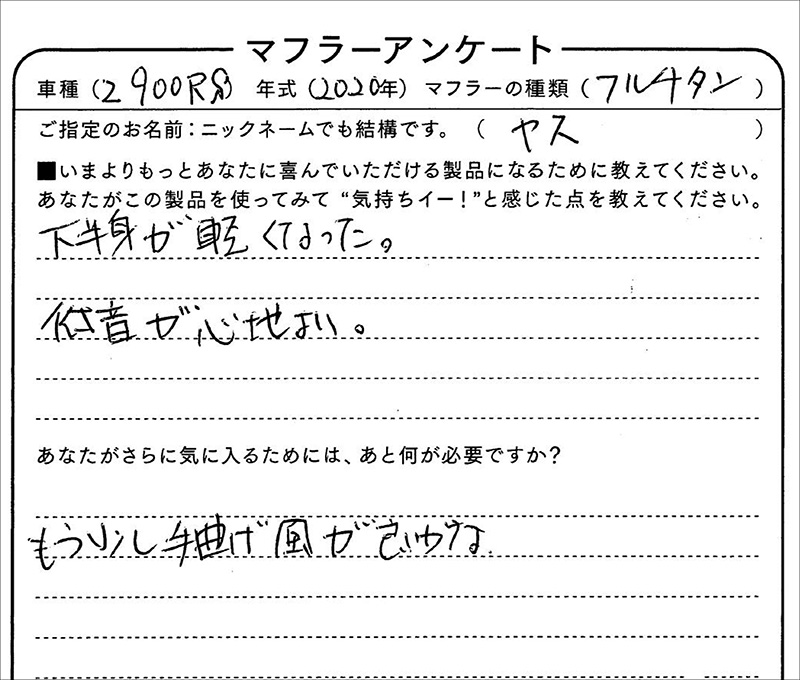 マフラーアンケート
車種（Z900RS） 年式（2020年） マフラーの種類（フルチタン）
ご指定のお名前：ニックネームでも結構です。（ヤス）
■いまよりもっとあなたに喜んでいただける製品になるために教えてください。
あなたがこの製品を使ってみて“気持ちイー！”と感じた点を教えてください。
下半身が軽くなった。
低音が心地よい。
あなたがさらに気に入るためには、あと何が必要ですか？
もう少し手曲げ風が良いかな